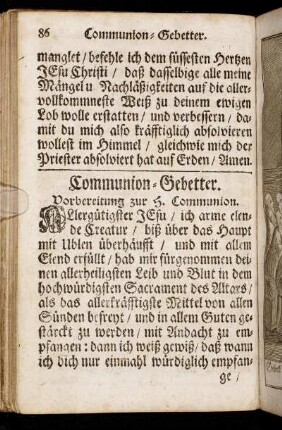 86 Communion-Gebetter.
manglet / befehle ich dem süssesten Hertzen
JEsu Christi / daß dasselbige alle meine
Mängel u. Nachläßigkeiten auf die aller-
vollkommneste Weiß zu deinem ewigen
Lob wolle erstatten / und verbessern / da-
mit du mich also kräfftiglich absolvieren
wollest im Himmel / gleichwie mich der
Priester absolviert hat auf Erden / Amen.
Communion-Gebetter.
Vorbereitung zur H. Communion.
ALlergütigster JEsu / ich arme elen-
de Creatur / biß über das Haupt
mit Ublen überhäufft / und mit allem
Elend erfüllt / hab mir fürgenommen dei-
nen allerheiligsten Leib und Blut in dem
hochwürdigsten Sacrament des Altars /
als das allerkräfftigste Mittel von allen
Sünden befreyt / und in allem Guten ge-
stärckt zu werden / mit Andacht zu em-
pfangen: dann ich weiß gewiß / daß wann
ich dich nur einmahl würdiglich empfan-
ge /